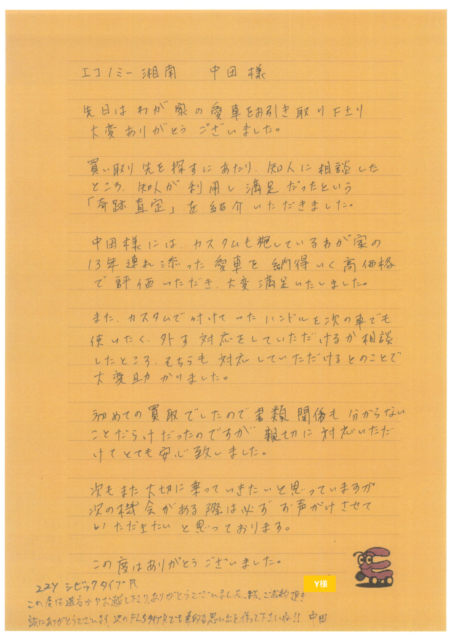 エコノミー湘南　中田様
先日はわが家の愛車をお引き取り下さり
大変ありがとうございました。
買い取り先を探すにあたり、知人に相談した
ところ、知人が利用し満足だったという
「奇跡査定」を紹介いただきました。
中田様には、カスタムも施しているわが家の
13年連れ添った愛車を納得いく高価格
で評価いただき、大変満足いたしました。
また、カスタムで付けていたハンドルを次の車でも
使いたく、外す対応をしていただけるか相談
したところ、そちらも対応していただけるとのことで
大変助かりました。
初めての買取でしたので書類関係も分からない
ことだらけだったのですが親切に対応いただ
けてとても安心致しました。
次もまた大切に乗っていきたいと思っていますが
次の機会がある際は必ずお声がけさせて
いただきたいと思っております。
この度はありがとうございました。
22Y シビックタイプR
この度は遠方からお越し下さりありがとうございました。
誠にありがとうございます。次のFL5タイプRでも素敵な思い出を作って下さいね!! 中田